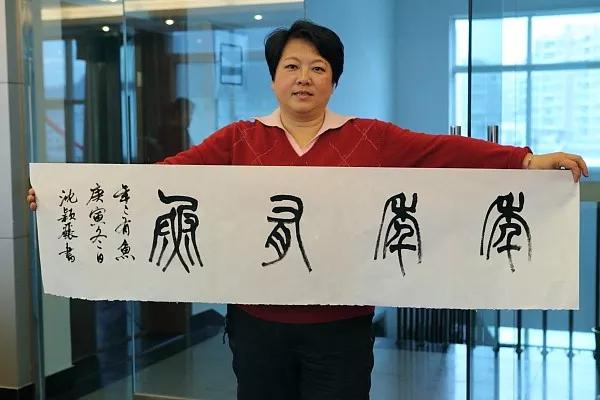 年年有魚
年々有魚
庚寅冬日
沈穎書